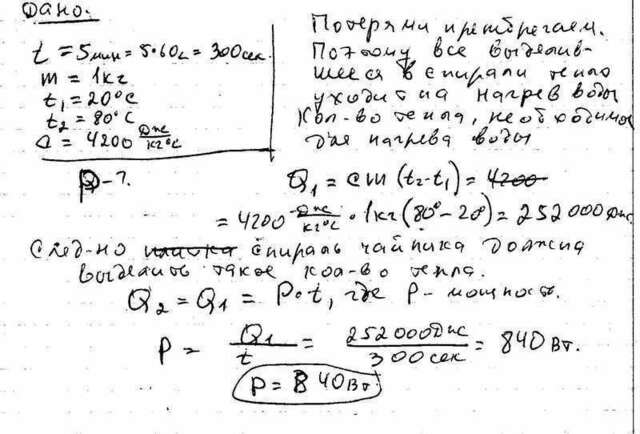 Дано:
t = 5мин = 5·60с = 300сек.
m = 1кг
t₁ = 20°C
t₂ = 80°C
c = 4200 Дж/кг°C
P - ?
Потерями пренебрегаем.
Поэтому все выделив-
шееся в спирали тепло
уходит на нагрев воды
Кол-во тепла, необходимое
для нагрева воды
Q₁ = cm (t₂-t₁) = 4200
= 4200 Дж/кг°C · 1кг (80° - 20°) = 252000Дж
След-но спираль чайника должна
выделить такое кол-во тепла.
Q₂ = Q₁ = P·t, где P - мощность.
P = Q₁/t = 252000Дж/300сек = 840 Вт.
P = 840Вт